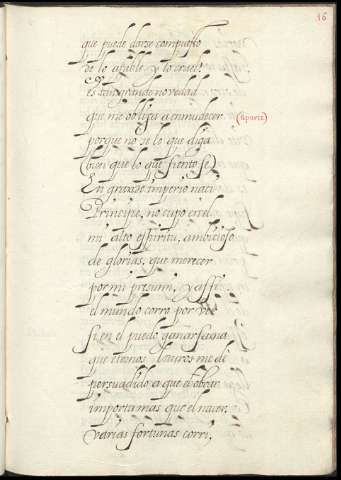 16
que puede darse compuesto
de lo afable y lo cruel?
es tan grande novedad
que me obliga a enmudecer (Aparte)
porque no se lo que diga
(bien que lo que siento se)
En grande imperio naci
Principe, no cupo en el
mi alto espiritu, ambicioso
de glorias, que merecer
por mi presumi, y assi
el mundo corro por ver
si en el puedo ganar fama
que eternos lauros me dè
persuadido a que el obrar
importa mas que el nacer.
Varias fortunas corri,